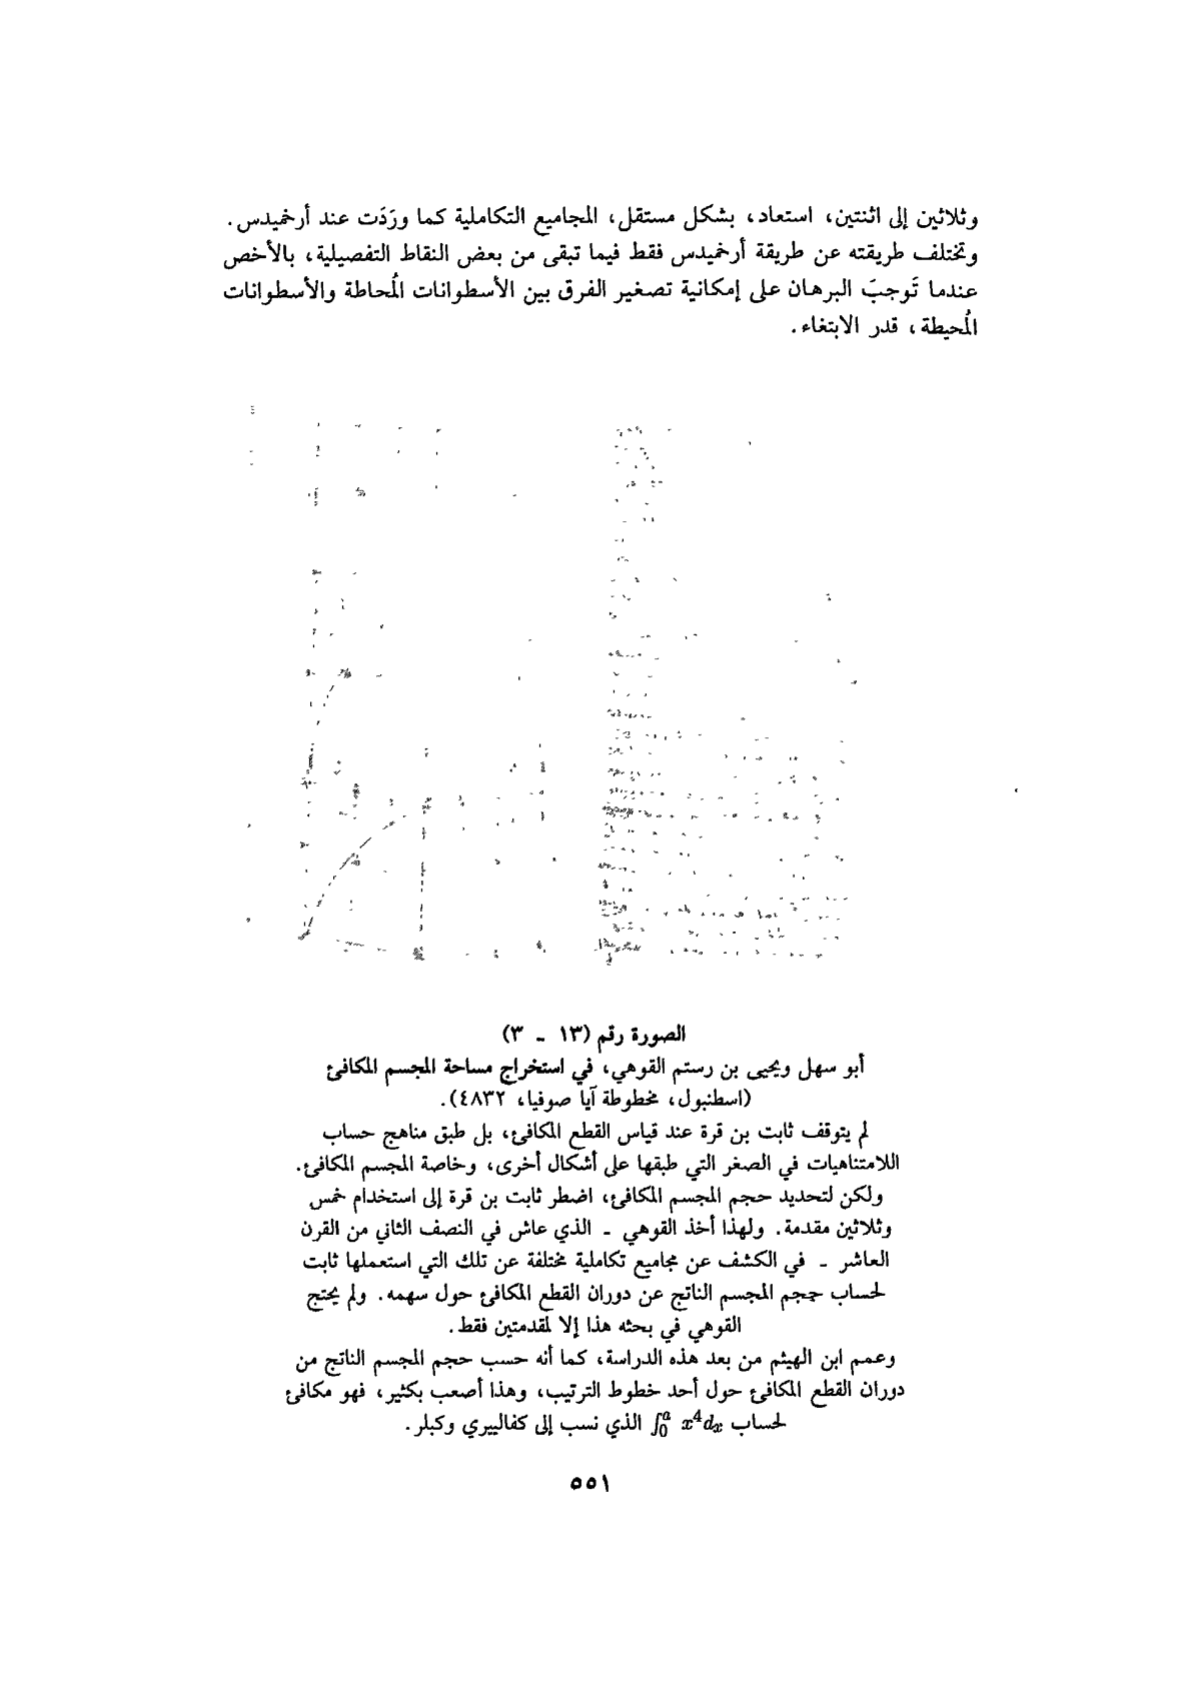 وثلاثين إلى اثنتين، استعاد، بشكل مستقل، المجاميع التكاملية كما ورَدَت عند أرخميدس.
وتختلف طريقته عن طريقة أرخميدس فقط فيما تبقى من بعض النقاط التفصيلية، بالأخص
عندما تَوجبَ البرهان على إمكانية تصغير الفرق بين الأسطوانات المُحاطة والأسطوانات
المُحيطة، قدر الابتغاء.
الصورة رقم (١٣ ـ ٣)
أبو سهل ويحيى بن رستم القوهي، في استخراج مساحة المجسم المكافئ
(اسطنبول، مخطوطة آيا صوفيا، ٤٨٣٢).
لم يتوقف ثابت بن قرة عند قياس القطع المكافئ، بل طبق مناهج حساب
اللامتناهيات في الصغر التي طبقها على أشكال أخرى، وخاصة المجسم المكافئ.
ولكن لتحديد حجم المجسم المكافئ، اضطر ثابت بن قرة إلى استخدام خمس
وثلاثين مقدمة. ولهذا أخذ القوهي ـ الذي عاش في النصف الثاني من القرن
العاشر ـ في الكشف عن مجاميع تكاملية مختلفة عن تلك التي استعملها ثابت
لحساب حجم المجسم الناتج عن دوران القطع المكافئ حول سهمه. ولم يحتج
القوهي في بحثه هذا إلا لمقدمتين فقط.
وعمم ابن الهيثم من بعد هذه الدراسة، كما أنه حسب حجم المجسم الناتج من
دوران القطع المكافئ حول أحد خطوط الترتيب، وهذا أصعب بكثير، فهو مكافئ
لحساب ∫₀ᵃ x⁴dx الذي نسب إلى كفالييري وكبلر.
٥٥١